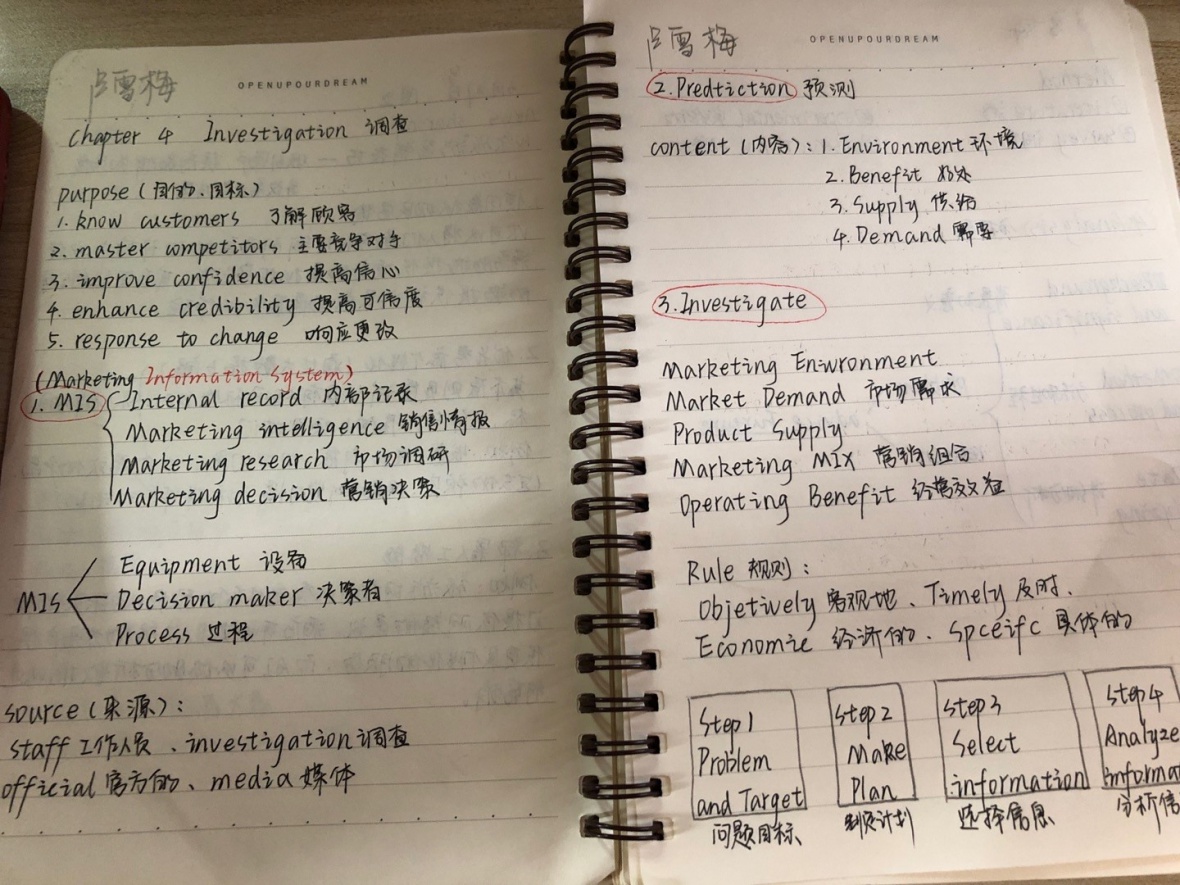 卢雪梅
OPENUPOURDREAM
Chapter 4 Investigation 调查
purpose (目的、目标)
1. know customers 了解顾客
2. master competitors 主要竞争对手
3. improve confidence 提高信心
4. enhance credibility 提高可信度
5. response to change 响应更改
(Marketing Information System)
1. MIS Internal record 内部记录
Marketing intelligence 销售情报
Marketing research 市场调研
Marketing decision 营销决策
Equipment 设备
MIS Decision maker 决策者
Process 过程
source (来源):
staff 工作人员、investigation 调查
official 官方的、media 媒体
卢雪梅
OPENUPOURDREAM
2. Predtiction 预测
content (内容): 1. Environment 环境
2. Benefit 好处
3. Supply 供给
4. Demand 需要
3. Investigate
Marketing Enwronment
Market Demand 市场需求
Product Supply
Marketing MIX 营销组合
Operating Benefit 经营效益
Rule 规则:
Objetively 客观地、Timely 及时、
Economic 经济的、Spceifc 具体的
Step1
Problem
and Target
问题目标
Step2
Make
Plan
制定计划
Step3
Select
information
选择信息
Step4
Analyze
informa
分析信